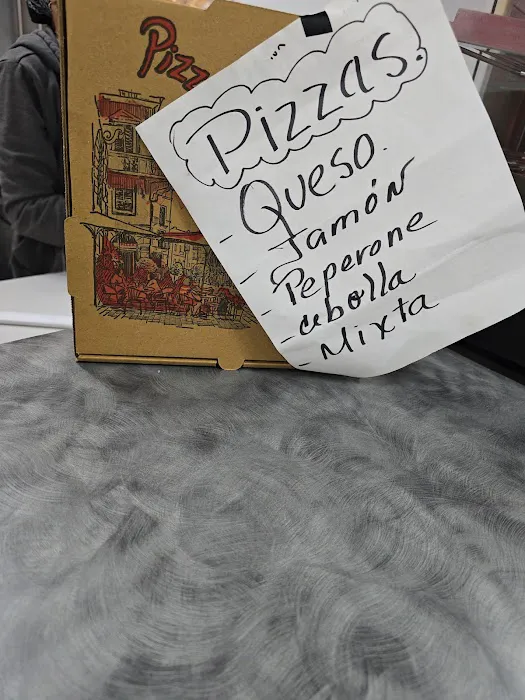 Pizz
Pizzas.
Queso.
- Jamón
- Peperone
- cebolla
- Mixta